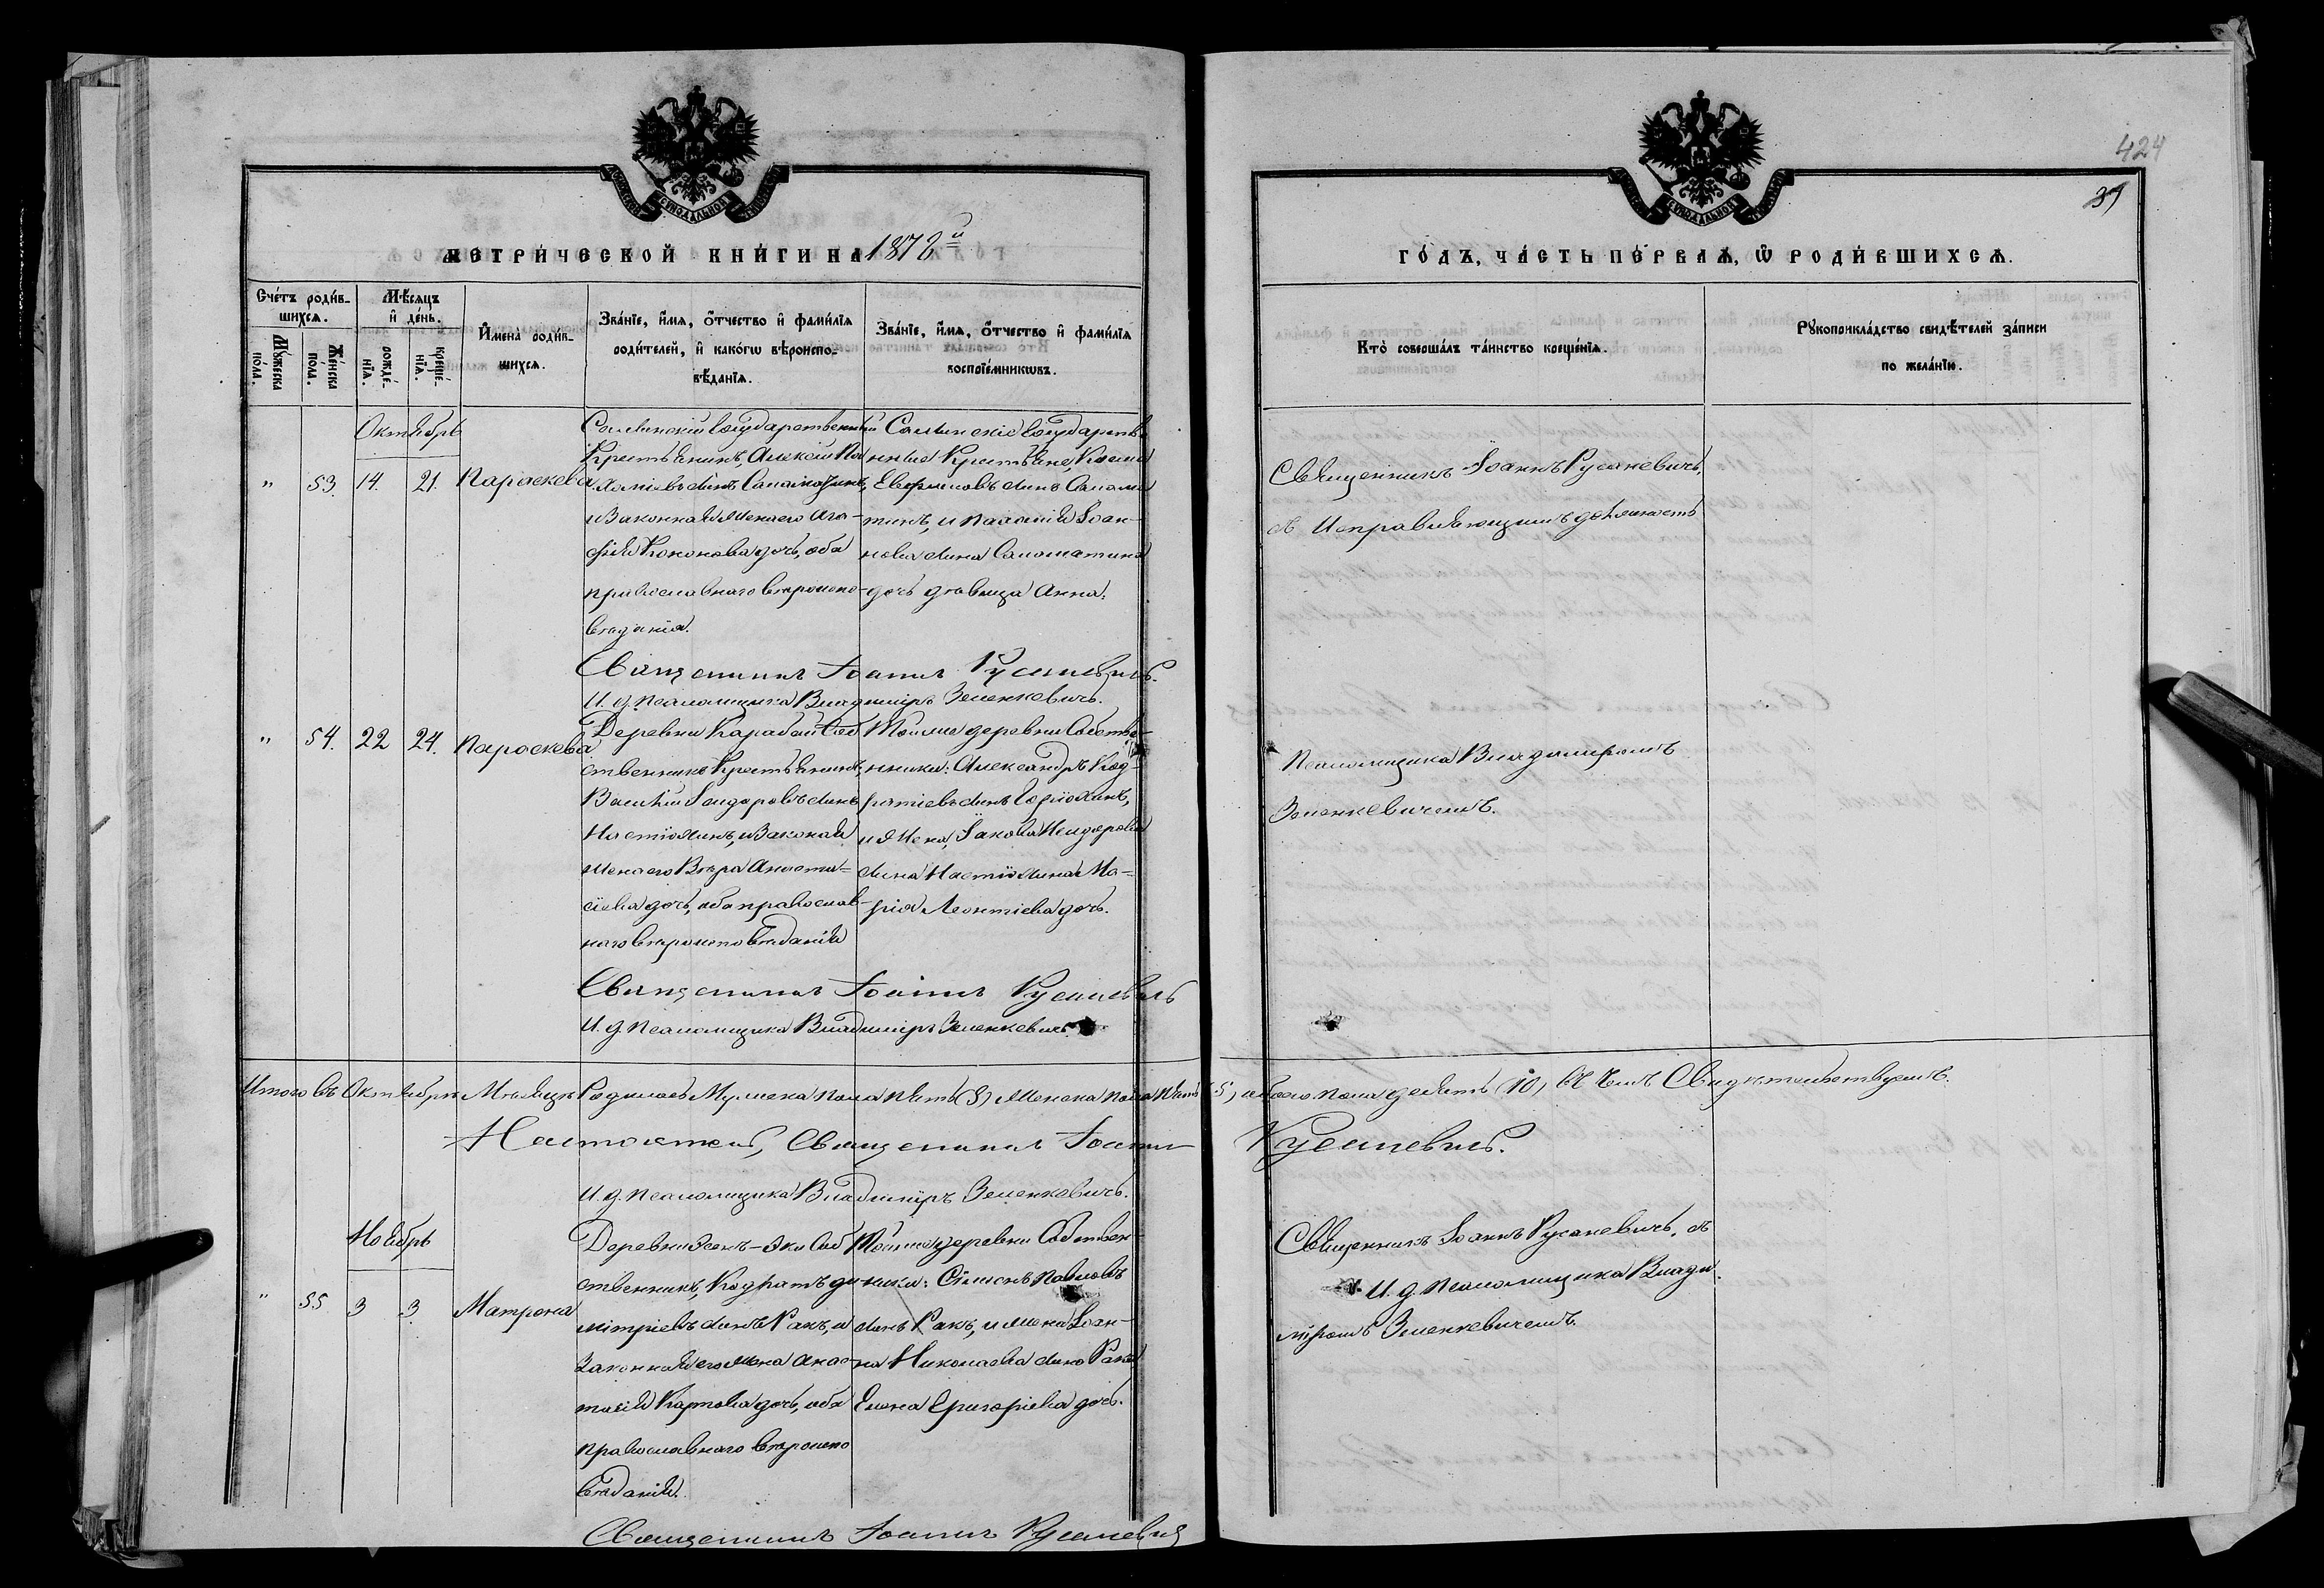 424
39
МЕТРИЧЕСКОЙ КНИГИ НА 1872й
ГОДЪ, ЧАСТЬ ПЕРВАѦ, Ѿ РОДИВШИХСѦ.
Счетъ родив-
шихсѧ.
Мужеска
пола.
Женска
пола.
Мѣсяцъ
и день.
рожде-
нїѧ.
креще-
нїѧ.
Имена родив-
шихсѧ.
Званїе, имѧ, отчество и фамилїѧ
родителей, и какогѡ вѣроиспо-
вѣданїѧ.
Званїе, имѧ, отчество и фамилїѧ
воспрїемникѡвъ.
Кто совершалъ таинство крещенїѧ.
Рукоприкладство свидѣтелей записи
по желанїю.
Октябрь
" 53. 14. 21. Параскева
Государственный
Крестьянинъ, Алексій
и Законная жена его
дочь, оба
православнаго вѣроиспо-
вѣданія.
Государстве-
нные Крестьяне,
нова сына
дочь дѣвица Анна.
Священникъ Іоаннъ Русаневичъ,
съ Исправляющимъ должность
Псаломщика Владиміромъ
Зеленкевичемъ.
Священникъ Іоаннъ Русаневичъ.
И. д. Псаломщика Владиміръ Зеленкевичъ.
" 54. 22 24. Параскева
Деревни Карабай Соб-
ственникъ Крестьянинъ,
Василій Сидоровъ сынъ
и Законная
жена его Вѣра Анаста-
сіева дочь, оба православ-
наго вѣроисповѣданія
Той же деревни Собстве-
нники: Александръ Код-
ратіевъ сынъ
и жена, Іакова Исидорова
сына Ма-
рія Леонтіева дочь.
Священникъ Іоаннъ Русаневичъ
И. д. Псаломщика Владиміръ Зеленкевичъ.
Итого въ Октябрѣ Мѣсяцѣ Родилось Мужеска пола пять (5) Женска пола пять (5), обоего пола десять (10), въ чемъ Свидѣтельствуемъ.
Настоятель, Священникъ Іоаннъ Русаневичъ.
И. д. Псаломщика Владиміръ Зеленкевичъ.
Ноябрь
" 55 3 3 Матрона
Деревни Соб-
ственникъ, Кодратъ Ди-
митріевъ сынъ Ракъ, и
Законная его жена Анас-
тасія Карпова дочь, оба
православнаго вѣроиспо-
вѣданія.
Той же деревни Собствен-
ники: Сѵмеонъ Павловъ
сынъ Ракъ, и жена Іоан-
на Николаева сына Рака
Елена Григоріева дочь.
Священникъ Іоаннъ Русаневичъ, съ
И. д. Псаломщика Влади-
міромъ Зеленкевичемъ.
Священникъ Іоаннъ Русаневичъ